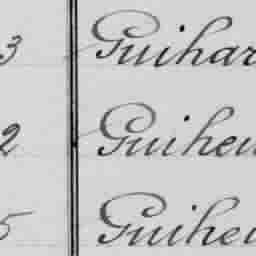 3 Guihar
2 Guiheu
5 Guiheu